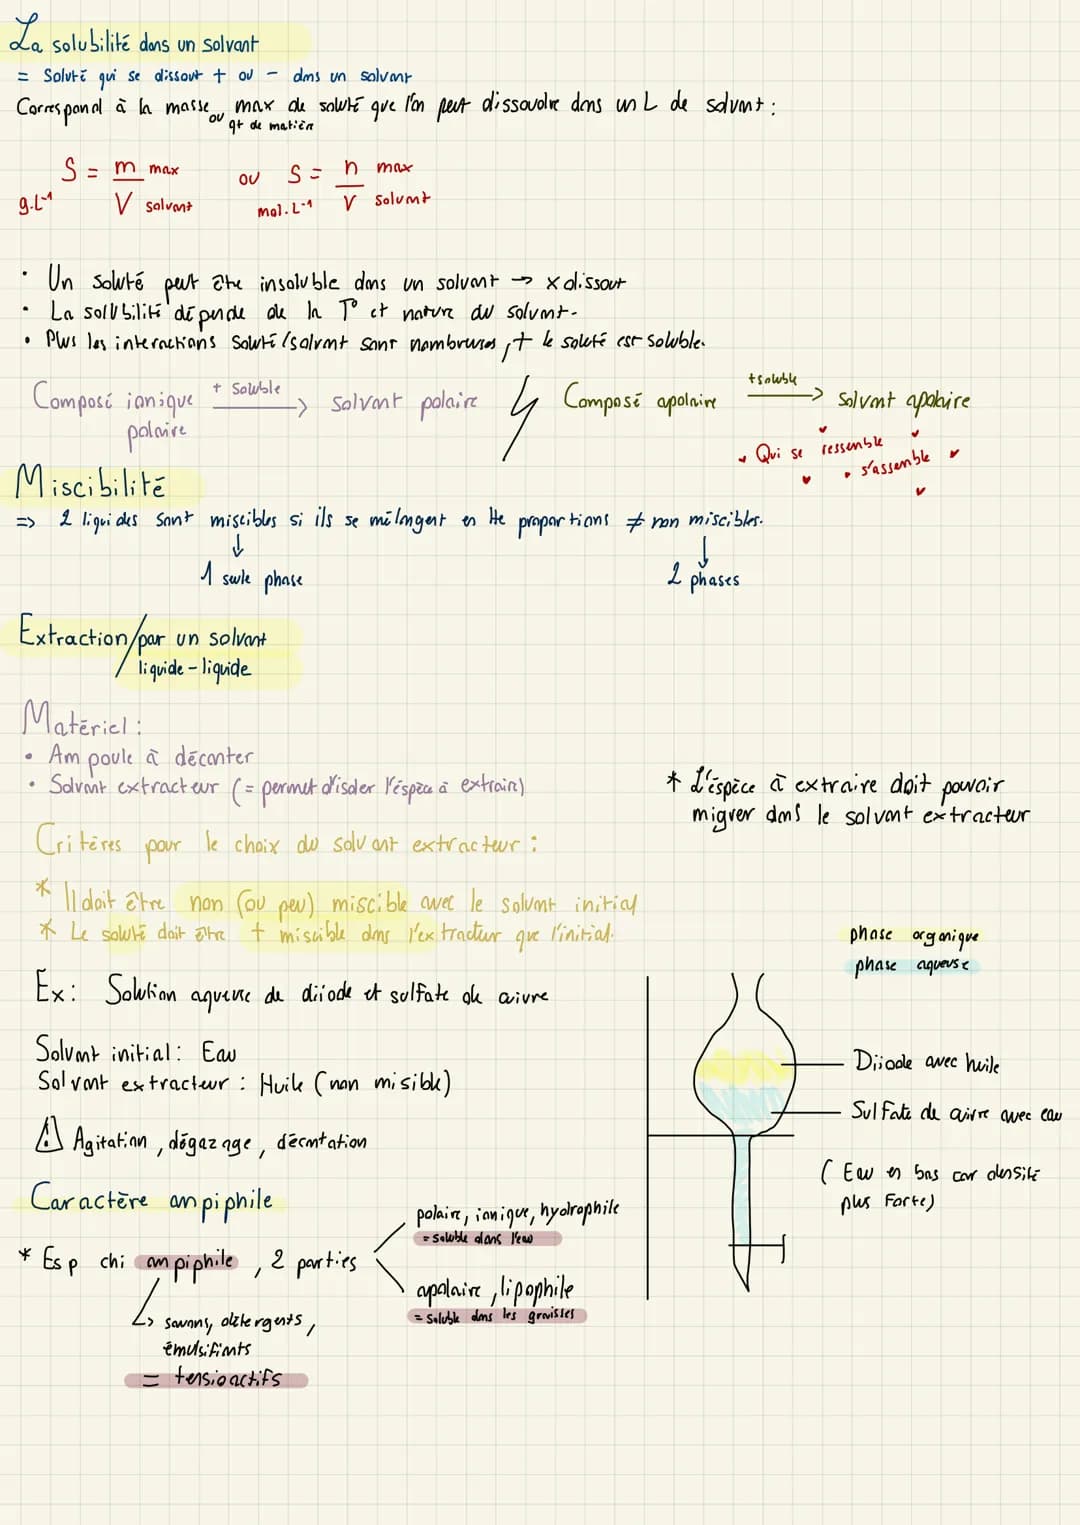 La solubilité dans un solvant
= Soluté qui se dissout + ou - dans un solvant
Correspond à la masse ou qt de matière max de soluté que l'on peut dissoudre dans un L de solvant :
S = m max / V solvant ou S = n max / V solvant
g.L⁻¹ mol.L⁻¹
• Un soluté peut être insoluble dans un solvant → x dissout
• La solubilité dépende de la T° et nature du solvant.
• Plus les interactions soluté/solvant sont nombreuses, + le soluté est soluble.
Composé ionique polaire + soluble → solvant polaire
Composé apolaire + soluble → solvant apolaire
Qui se ressemble s'assemble
Miscibilité
=> 2 liquides sont miscibles si ils se mélangent en tte proportions ≠ non miscibles.
↓ ↓
1 seule phase 2 phases
Extraction/par un solvant
liquide - liquide
Matériel :
• Ampoule à décanter
• Solvant extracteur (= permet d'isoler l'éspèce à extraire)
* L'éspèce à extraire doit pouvoir
migrer dans le solvant extracteur
Critères pour le choix du solvant extracteur :
* Il doit être non (ou peu) miscible avec le solvant initial
* Le soluté doit être + miscible dans l'extracteur que l'initial.
phase organique
phase aqueuse
Ex : Solution aqueuse de diiode et sulfate de cuivre
Solvant initial : Eau
Solvant extracteur : Huile (non misible)
Diiode avec huile
Sulfate de cuivre avec eau
(Eau en bas car densité
plus forte)
⚠ Agitation, dégazage, décantation
Caractère ampiphile
* Esp chi ampiphile, 2 parties
polaire, ionique, hydrophile
= soluble dans l'eau
apolaire, lipophile
= soluble dans les graisses
↳ savons, détergents,
émulsifiants
= tensioactifs